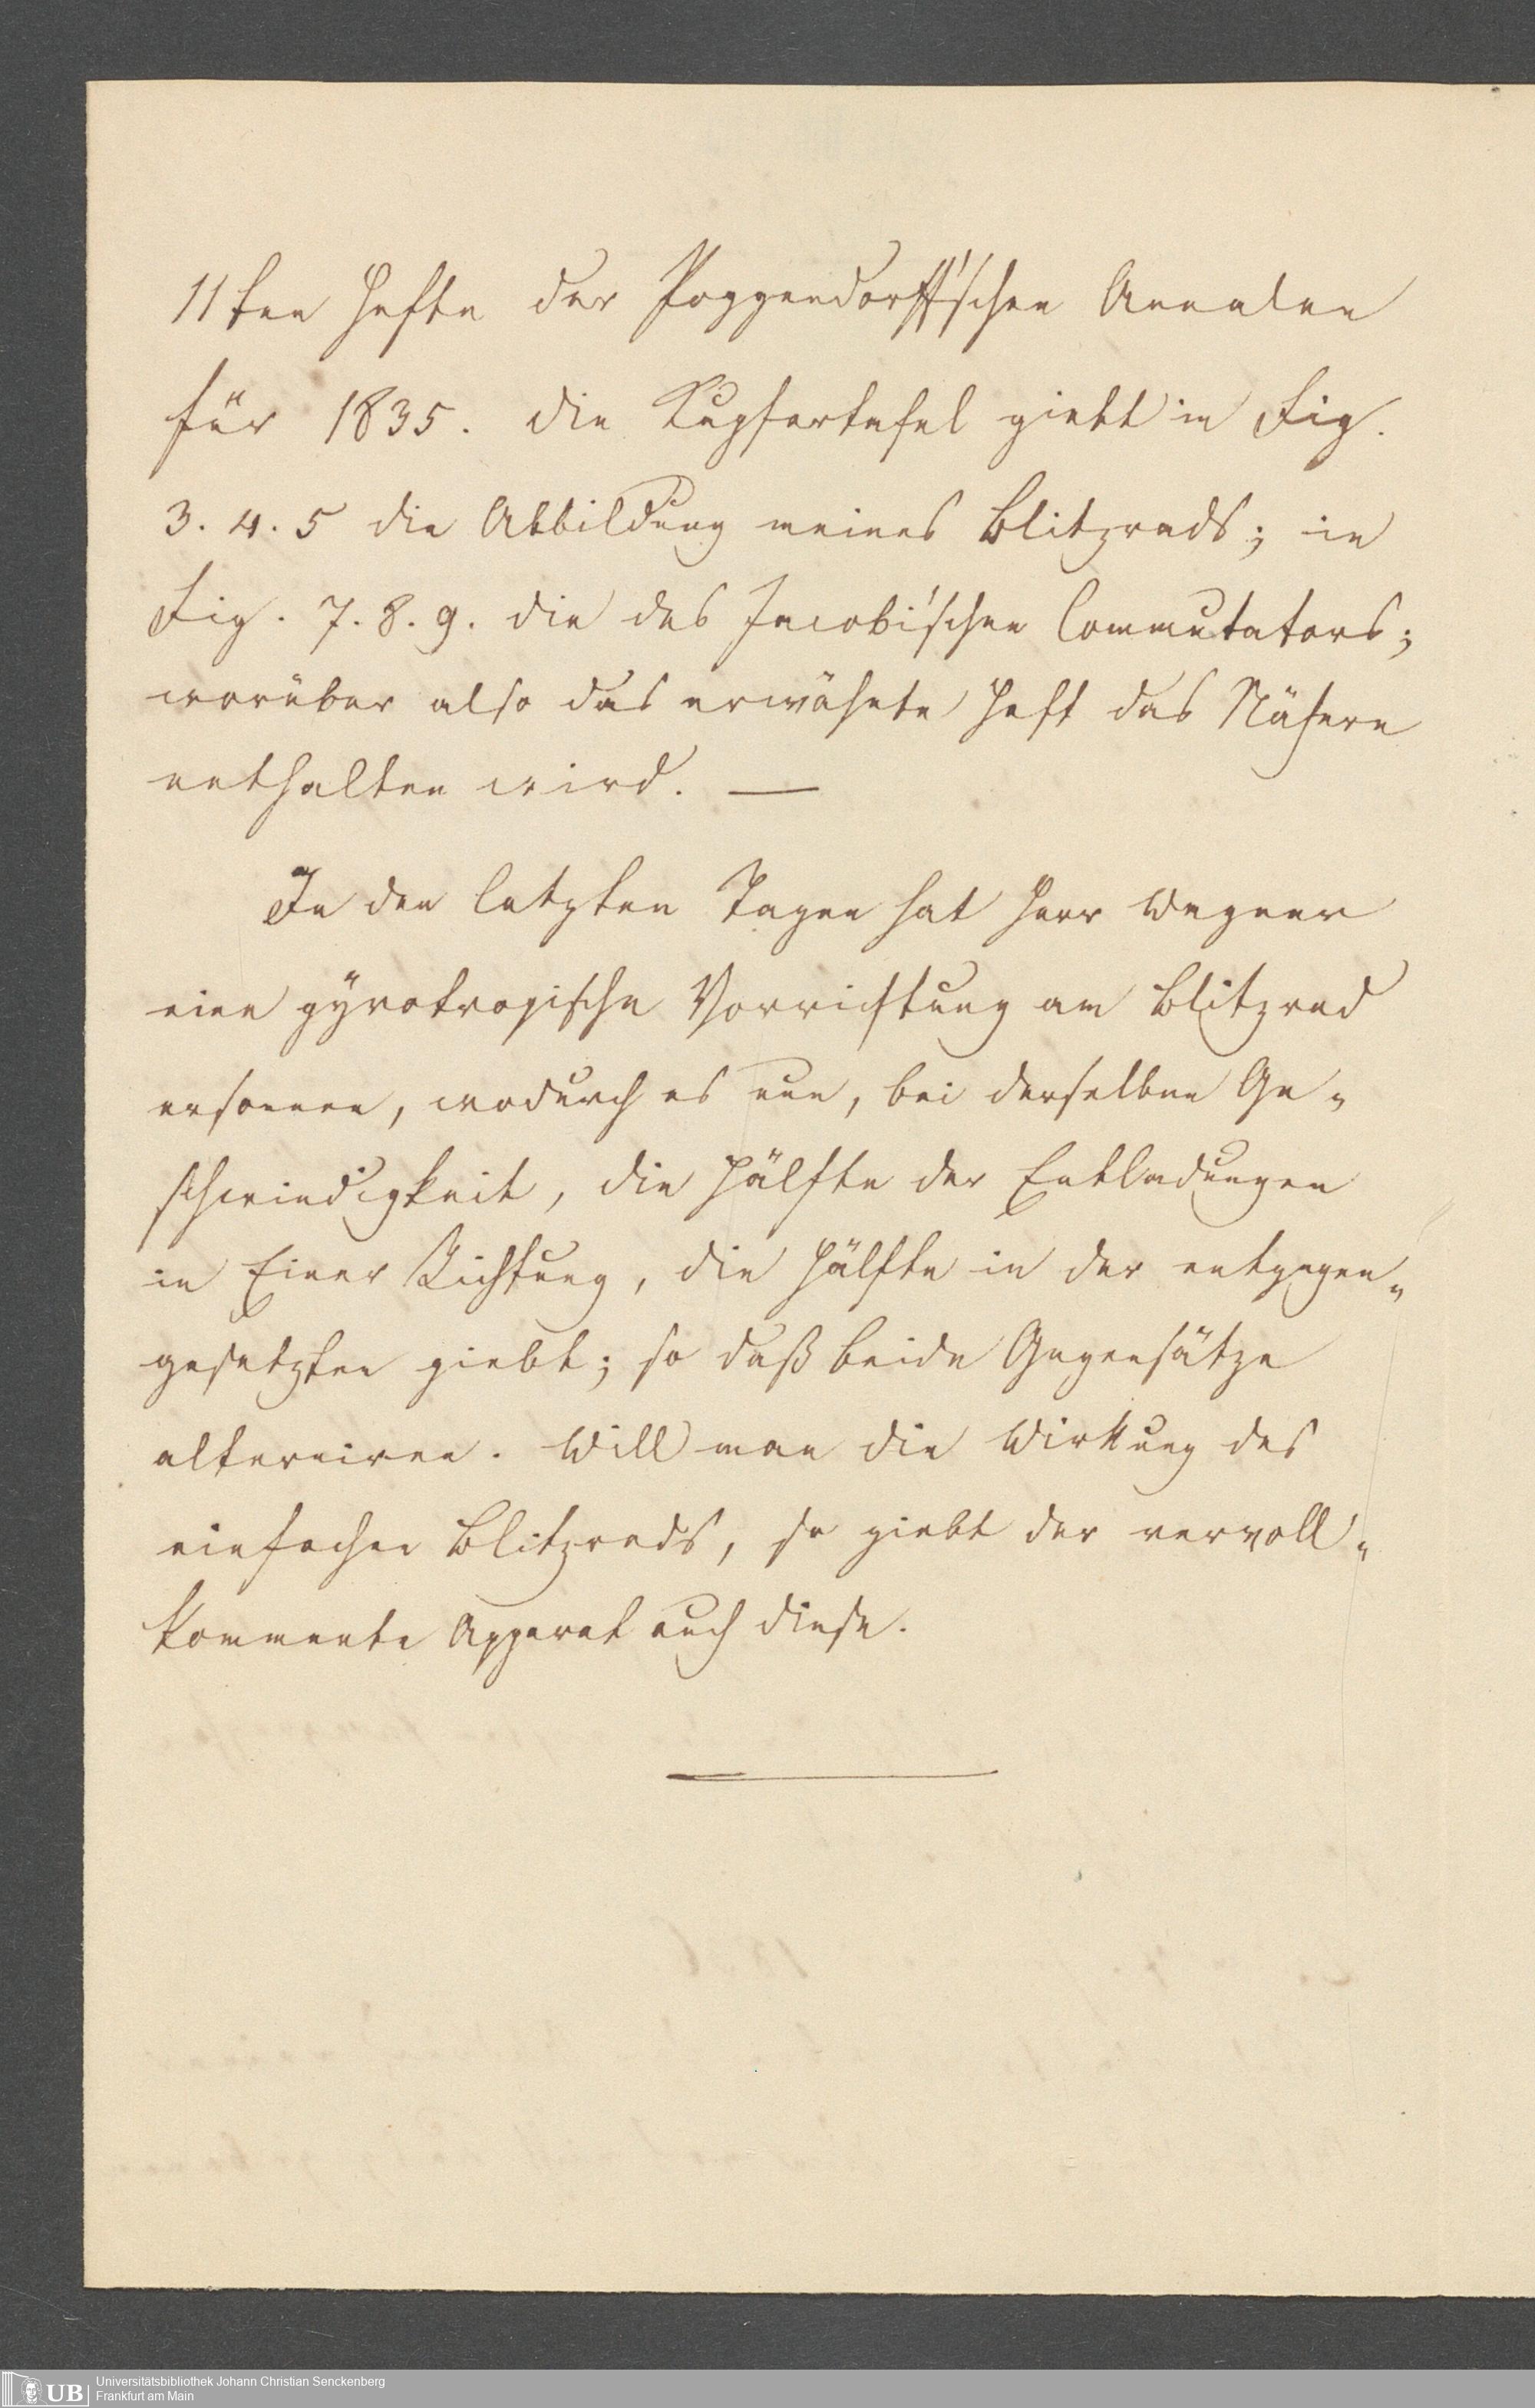 11ten Hefte der Poggendorff'schen Annalen
für 1835. Die Kupfertafel giebt in Fig.
3. 4. 5 die Abbildung meines Blitzrads; in
Fig. 7. 8. 9. die des Jacobi'schen Commutators;
worüber also das erwähnte Heft das Nähere
enthalten wird. —
In den letzten Tagen hat Herr Wagner
eine gyrotropische Vorrichtung am Blitzrad
ersonnen, wodurch es nun, bei derselben Ge-
schwindigkeit, die Hälfte der Entladungen
in Einer Richtung, die Hälfte in der entgegen-
gesetzten giebt; so daß beide Gegensätze
alterniren. Will man die Wirkung des
einfachen Blitzrads, so giebt der vervoll-
kommente Apparat auch diese.
UB
Universitätsbibliothek Johann Christian Senckenberg
Frankfurt am Main